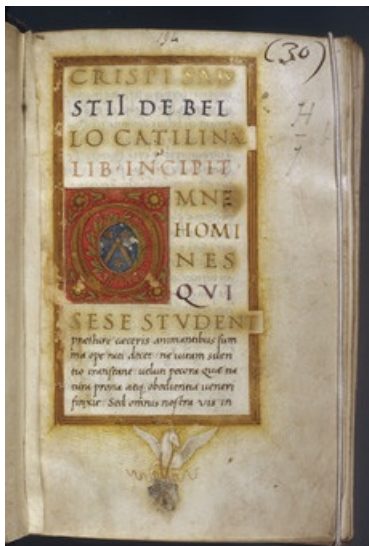 194
(30)
H
CRISPI SAL
STII DE BEL
LO CATILINA
LIB·INCIPIT
MNE
HOMI
NES
QVI
SESE STVDENT
prestare caeteris animantibus sum
ma ope niti decet: ne uitam silen
tio transeant: ueluti pecora quae na
tura prona atq; obedientia ueneri
finxit: Sed omnis nostra uis in